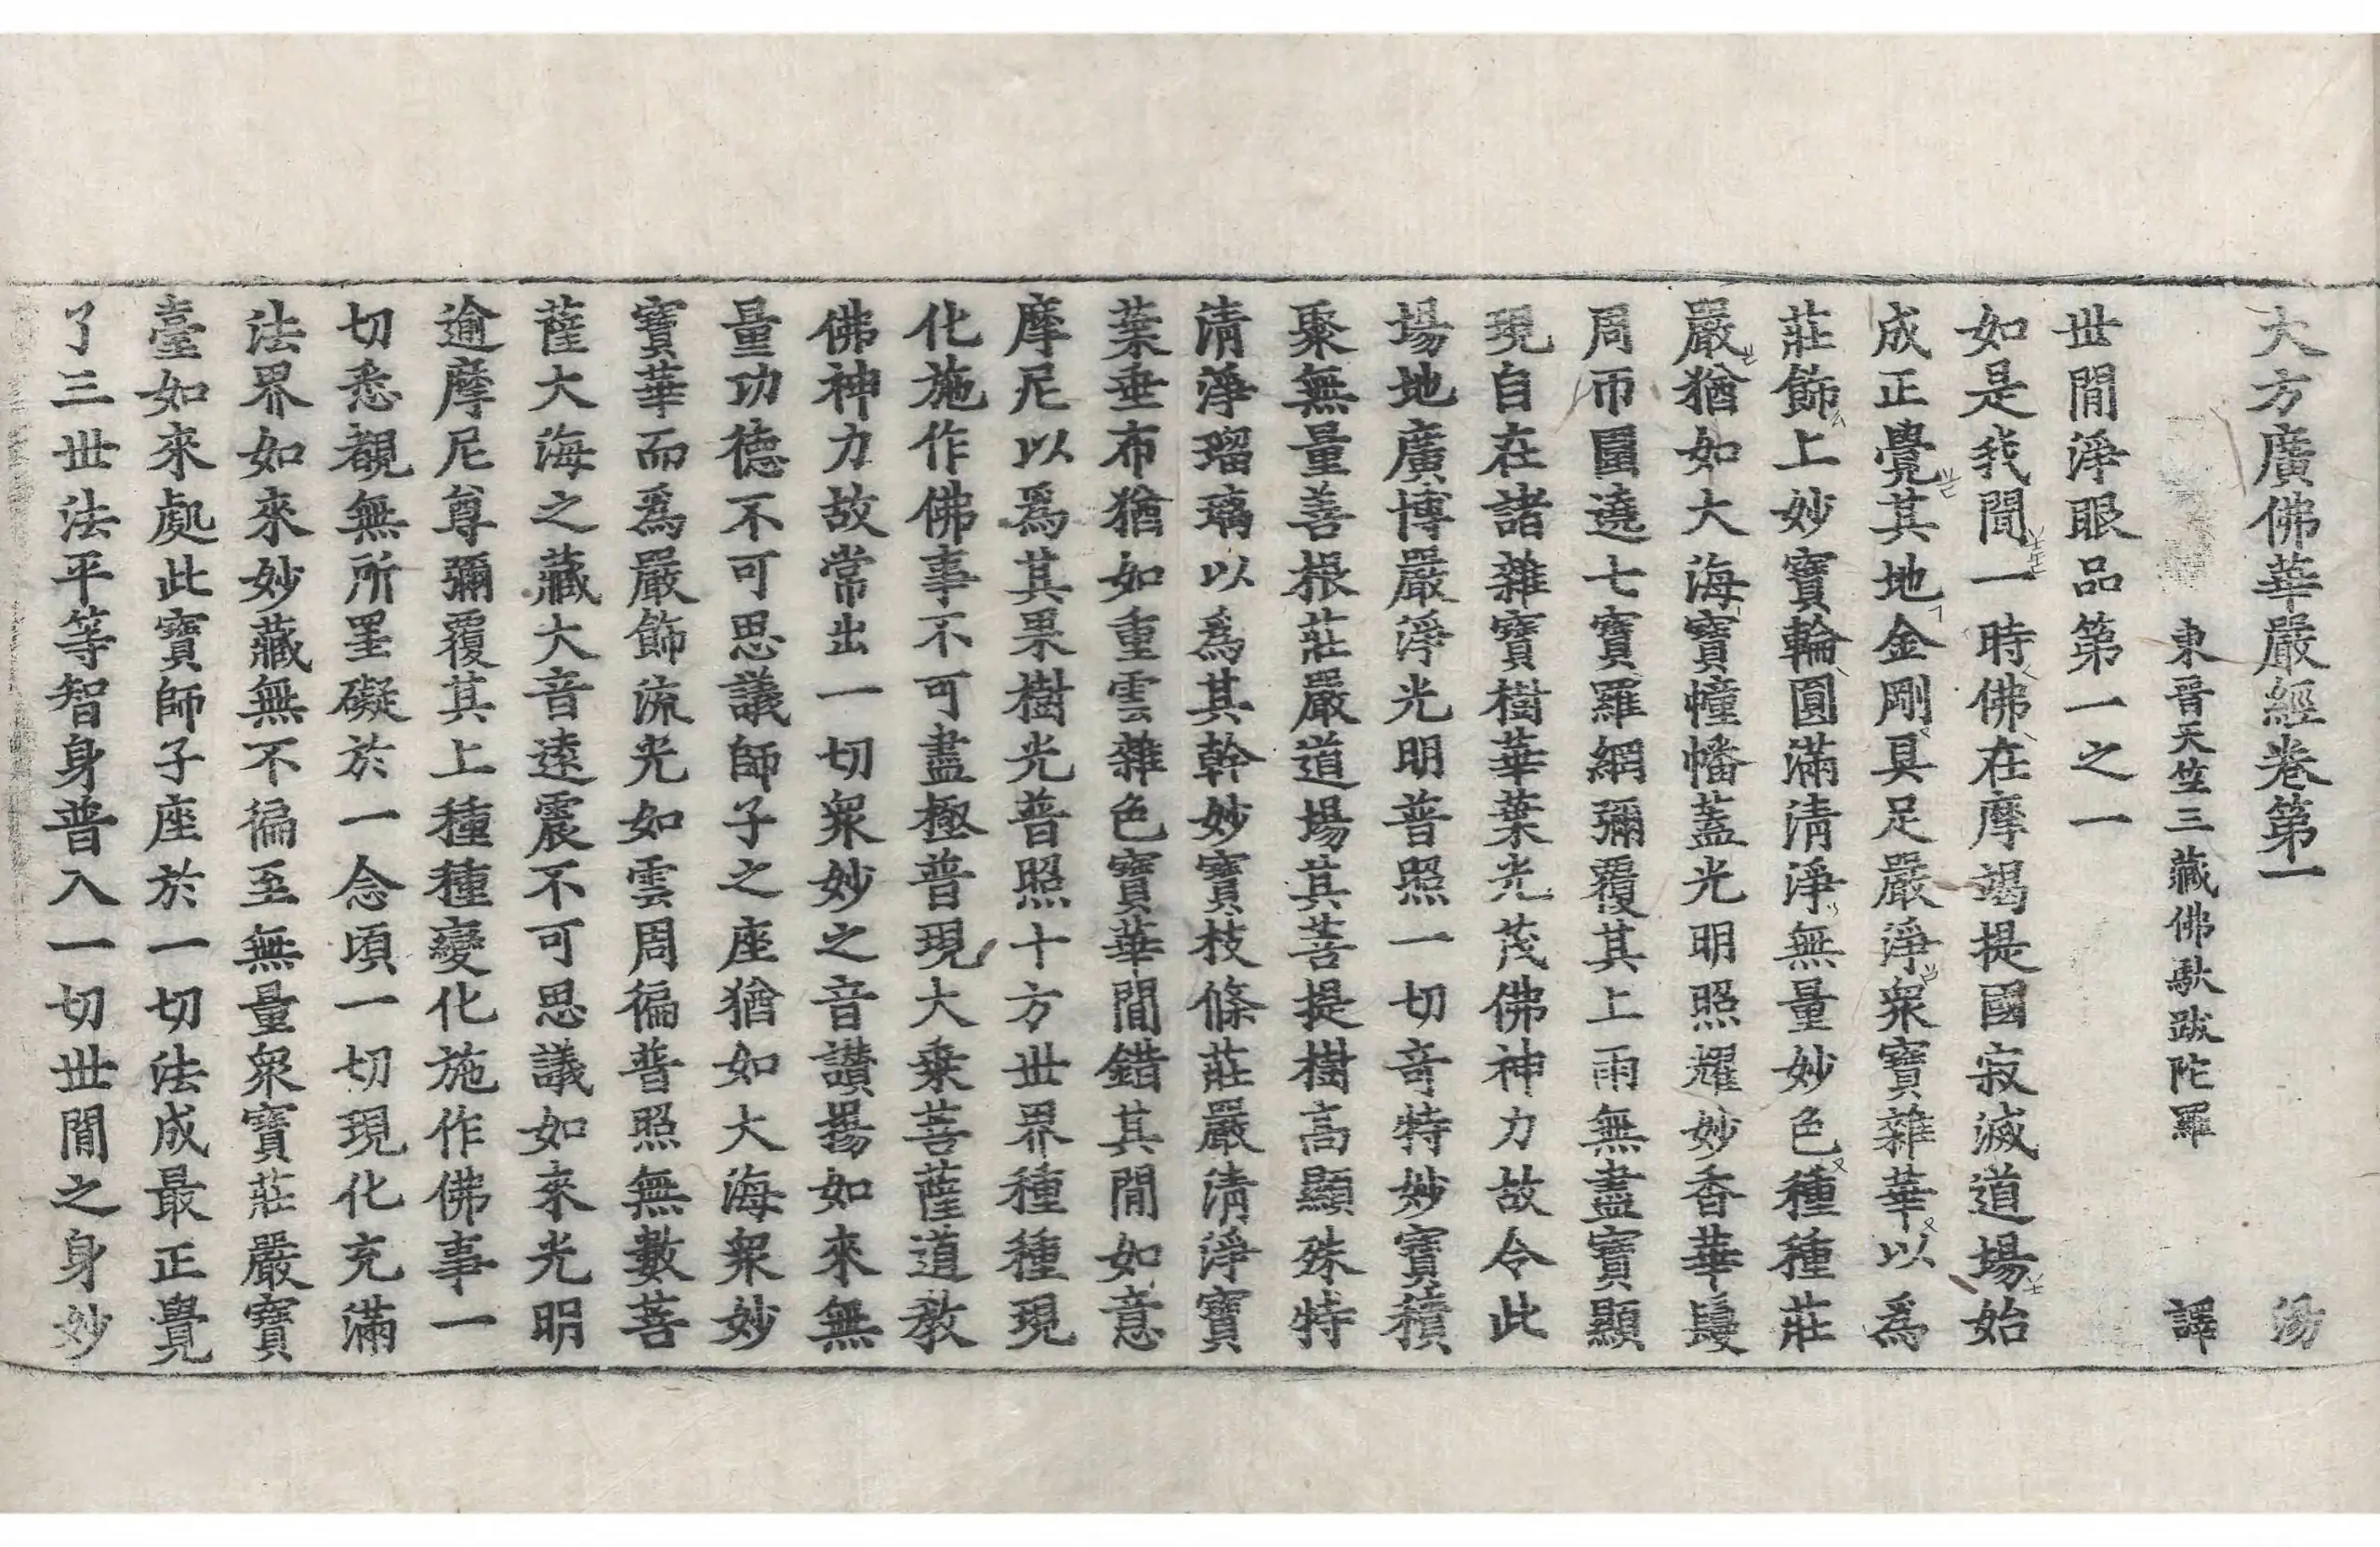 大方廣佛華嚴經卷第一 湯
東晉天竺三藏佛馱跋陀羅 譯
世間淨眼品第一之一
如是我聞一時佛在摩竭提國寂滅道場始
成正覺其地金剛具足嚴淨衆寶雜華以爲
莊飾上妙寶輪圓滿清淨無量妙色種種莊
嚴猶如大海寶幢幡蓋光明照耀妙香華鬘
周帀圍遶七寶羅網彌覆其上雨無盡寶顯
現自在諸雜寶樹華葉光茂佛神力故令此
場地廣博嚴淨光明普照一切奇特妙寶積
聚無量善根莊嚴道場其菩提樹高顯殊特
清淨瑠璃以爲其幹妙寶枝條莊嚴清淨寶
葉垂布猶如重雲雜色寶華間錯其間如意
摩尼以爲其果樹光普照十方世界種種現
化施作佛事不可盡極普現大乘菩薩道教
佛神力故常出一切衆妙之音讚揚如來無
量功德不可思議師子之座猶如大海衆妙
寶華而爲嚴飾流光如雲周徧普照無數菩
薩大海之藏大音遠震不可思議如來光明
逾摩尼尊彌覆其上種種變化施作佛事一
切悉覩無所罣礙於一念頃一切現化充滿
法界如來妙藏無不徧至無量衆寶莊嚴寶
臺如來處此寶師子座於一切法成最正覺
了三世法平等智身普入一切世間之身妙